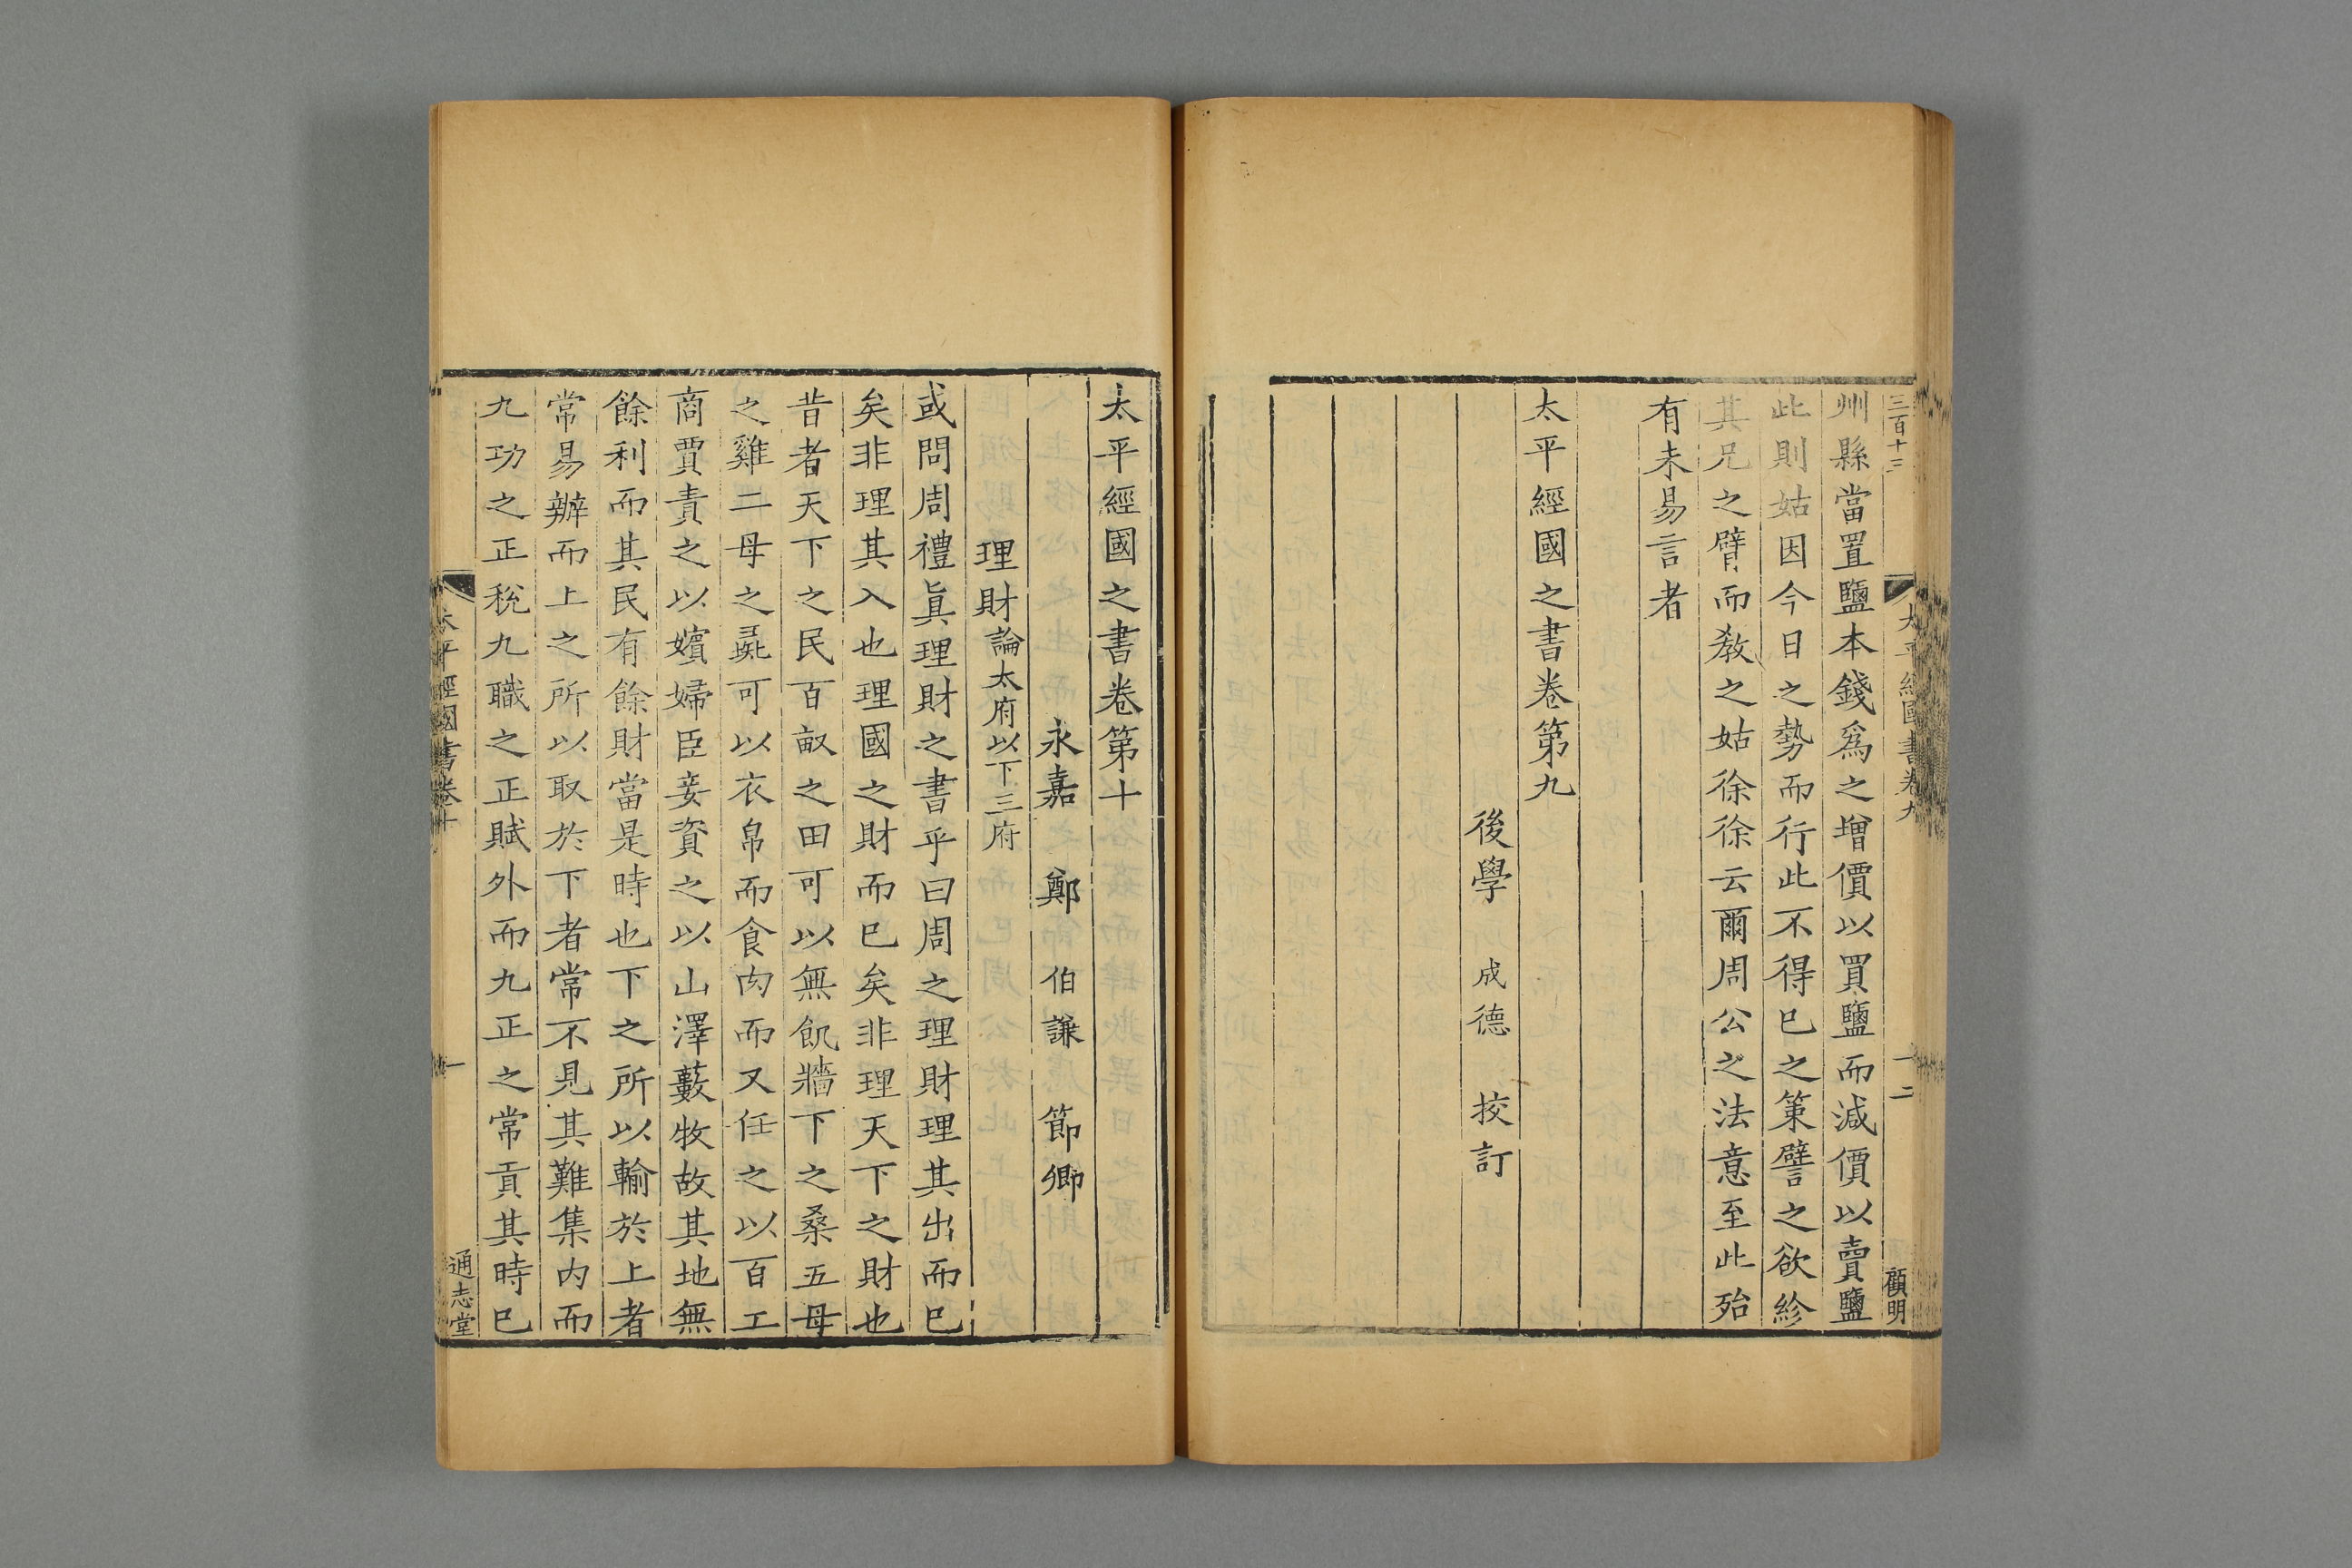 三百十三
太平經國書卷九
十二
顧明
州縣當置鹽本錢爲之增價以買鹽而減價以賣鹽
此則姑因今日之勢而行此不得已之策譬之欲紾
其兄之臂而敎之姑徐徐云爾周公之法意至此殆
有未易言者
太平經國之書卷第九
後學 成德 挍訂
太平經國之書卷第十
永嘉 鄭 伯謙 節卿
理財論太府以下三府
或問周禮眞理財之書乎曰周之理財理其出而已
矣非理其入也理國之財而已矣非理天下之財也
昔者天下之民百畝之田可以無飢牆下之桑五母
之雞二母之彘可以衣帛而食肉而又任之以百工
商賈責之以嬪婦臣妾資之以山澤藪牧故其地無
餘利而其民有餘財當是時也下之所以輸於上者
常易辦而上之所以取於下者常不見其難集内而
九功之正稅九職之正賦外而九正之常貢其時已
太平經國書卷十
一
通志堂